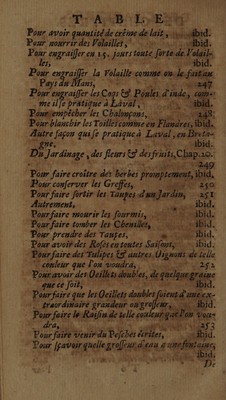 TABLE
Pour avoir quantité de crême de lait, ibid.
Pour nourrir des Volailles, ibid.
Pour engraisser en 15. jours toute sorte de Volail-
les, ibid.
Pour engraisser la Volaille comme on le fait au
Pays du Mans, 247
Pour engraisser les Coqs & Poules d'inde, com-
me il se pratique à Laval, ibid.
Pour empêcher les 248
Pour blanchir les Toilles comme en Flandres, ibid.
Autre façon qui se pratique à Laval, en Breta-
gne, ibid.
Du Jardinage, des fleurs & des fruits, Chap. 20.
249
Pour faire croître des herbes promptement, ibid.
Pour conserver les Greffes, 250
Pour faire sortir les Taupes d'un Jardin, 251
Autrement, ibid.
Pour faire mourir les fourmis, ibid.
Pour faire tomber les Chenilles, ibid.
Pour prendre des Taupes, ibid.
Pour avoir des Roses en toutes Saisons, ibid.
Pour faire des Tulipes & autres Oignons de telle
couleur que l'on voudra, 252
Pour avoir des Oeillets doubles, de quelque graine
que ce soit, ibid.
Pour faire que les Oeillets doubles soient d'une ex-
traordinaire grandeur ou grosseur, ibid.
Pour faire le Raisin de telle couleur que l'on vou-
dra, 253
Pour faire venir du Pesches écrites, ibid.
Pour sçavoir quelle grosseur d'eau a une fontaine,
ibid.